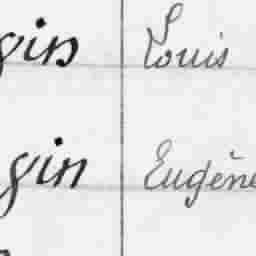 gin Louis
gin Eugène